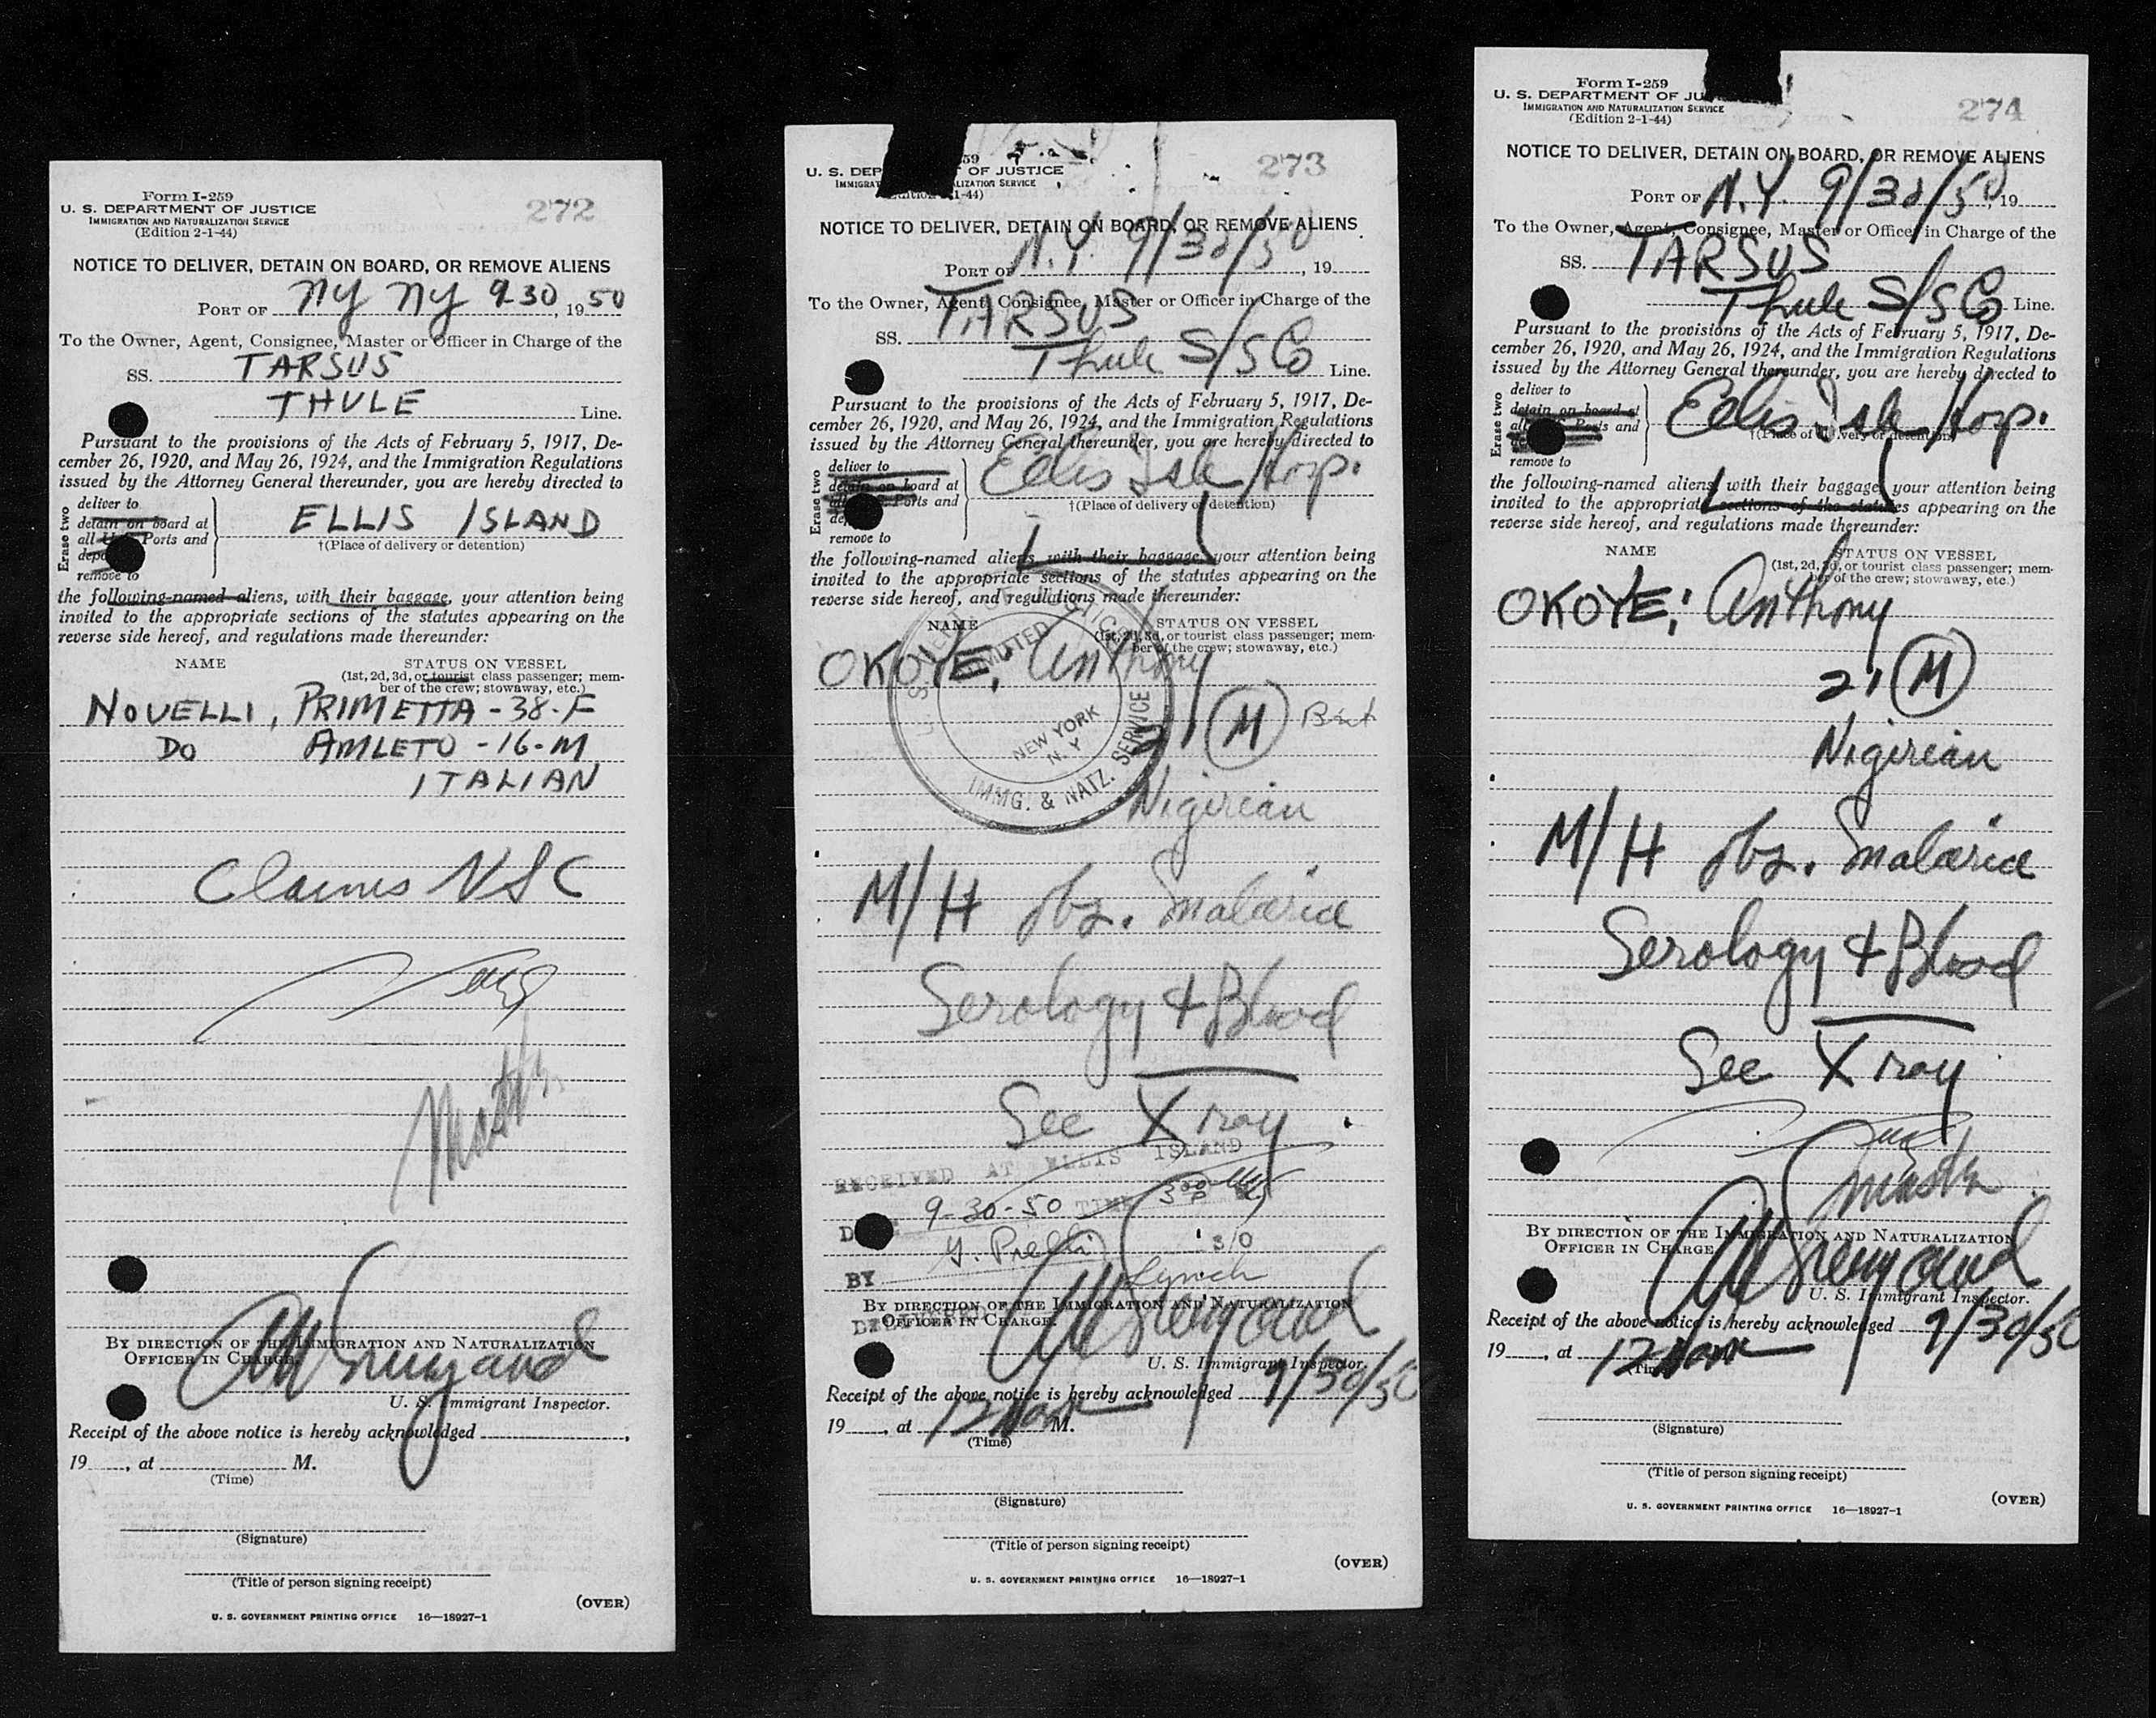 Form I-259
U. S. DEPARTMENT OF JUSTICE
IMMIGRATION AND NATURALIZATION SERVICE
(Edition 2-1-44)
272
NOTICE TO DELIVER, DETAIN ON BOARD, OR REMOVE ALIENS
PORT OF NY NY 9 30, 1950
To the Owner, Agent, Consignee, Master or Officer in Charge of the
SS. TARSUS
THULE Line.
Pursuant to the provisions of the Acts of February 5, 1917, De-
cember 26, 1920, and May 26, 1924, and the Immigration Regulations
issued by the Attorney General thereunder, you are hereby directed to
Erase two
deliver to
detain on board at
all Ports and
remove to
ELLIS ISLAND
†(Place of delivery or detention)
the following-named aliens, with their baggage, your attention being
invited to the appropriate sections of the statutes appearing on the
reverse side hereof, and regulations made thereunder:
NAME STATUS ON VESSEL
(1st, 2d, 3d, or tourist class passenger; mem-
ber of the crew; stowaway, etc.)
NOVELLI, PRIMETTA - 38 - F
DO AMLETO - 16 - M
ITALIAN
Claims NSC
BY DIRECTION OF THE IMMIGRATION AND NATURALIZATION
OFFICER IN CHARGE.
U. S. Immigrant Inspector.
Receipt of the above notice is hereby acknowledged ,
19 , at M.
(Time)
(Signature)
(Title of person signing receipt)
(OVER)
U. S. GOVERNMENT PRINTING OFFICE 16—18927-1
59
U. S. DEP OF JUSTICE
IMMIGRAT LIZATION SERVICE
1-44)
273
NOTICE TO DELIVER, DETAIN ON BOARD, OR REMOVE ALIENS
PORT OF N.Y. 9/30/50, 19
To the Owner, Agent, Consignee, Master or Officer in Charge of the
SS. TARSUS
Thule S/S Co Line.
Pursuant to the provisions of the Acts of February 5, 1917, De-
cember 26, 1920, and May 26, 1924, and the Immigration Regulations
issued by the Attorney General thereunder, you are hereby directed to
Erase two
deliver to
detain on board at
Ports and
remove to
Ellis Isle Hosp.
†(Place of delivery or detention)
the following-named aliens, with their baggage, your attention being
invited to the appropriate sections of the statutes appearing on the
reverse side hereof, and regulations made thereunder:
NAME STATUS ON VESSEL
(1st, 2d, 3d, or tourist class passenger; mem-
ber of the crew; stowaway, etc.)
OKOYE; Anthony
21 M
Nigirean
ADMITTED
NEW YORK
N. Y.
IMMG. & NATZ. SERVICE
M/H Obs. Malaria
Serology & Blood
See X ray
RECEIVED AT ELLIS ISLAND
9-30-50 TIME 3 00 P
BY
Lynch
BY DIRECTION OF THE IMMIGRATION AND NATURALIZATION
OFFICER IN CHARGE.
U. S. Immigrant Inspector.
Receipt of the above notice is hereby acknowledged 9/30/50
19 , at 12 Noon M.
(Time)
(Signature)
(Title of person signing receipt)
(OVER)
U. S. GOVERNMENT PRINTING OFFICE 16—18927-1
Form I-259
U. S. DEPARTMENT OF JU
IMMIGRATION AND NATURALIZATION SERVICE
(Edition 2-1-44)
274
NOTICE TO DELIVER, DETAIN ON BOARD, OR REMOVE ALIENS
PORT OF N.Y. 9/30/50, 19
To the Owner, Agent, Consignee, Master or Officer in Charge of the
SS. TARSUS
Thule S/S Co Line.
Pursuant to the provisions of the Acts of February 5, 1917, De-
cember 26, 1920, and May 26, 1924, and the Immigration Regulations
issued by the Attorney General thereunder, you are hereby directed to
Erase two
deliver to
detain on board at
all Ports and
remove to
Ellis Isle Hosp.
†(Place of delivery or detention)
the following-named aliens, with their baggage, your attention being
invited to the appropriate sections of the statutes appearing on the
reverse side hereof, and regulations made thereunder:
NAME STATUS ON VESSEL
(1st, 2d, 3d, or tourist class passenger; mem-
ber of the crew; stowaway, etc.)
OKOYE; Anthony
21 M
Nigirean
M/H Obs. Malaria
Serology & Blood
See X ray
BY DIRECTION OF THE IMMIGRATION AND NATURALIZATION
OFFICER IN CHARGE.
U. S. Immigrant Inspector.
Receipt of the above notice is hereby acknowledged 9/30/50
19 , at 12 Noon
(Time)
(Signature)
(Title of person signing receipt)
(OVER)
U. S. GOVERNMENT PRINTING OFFICE 16—18927-1